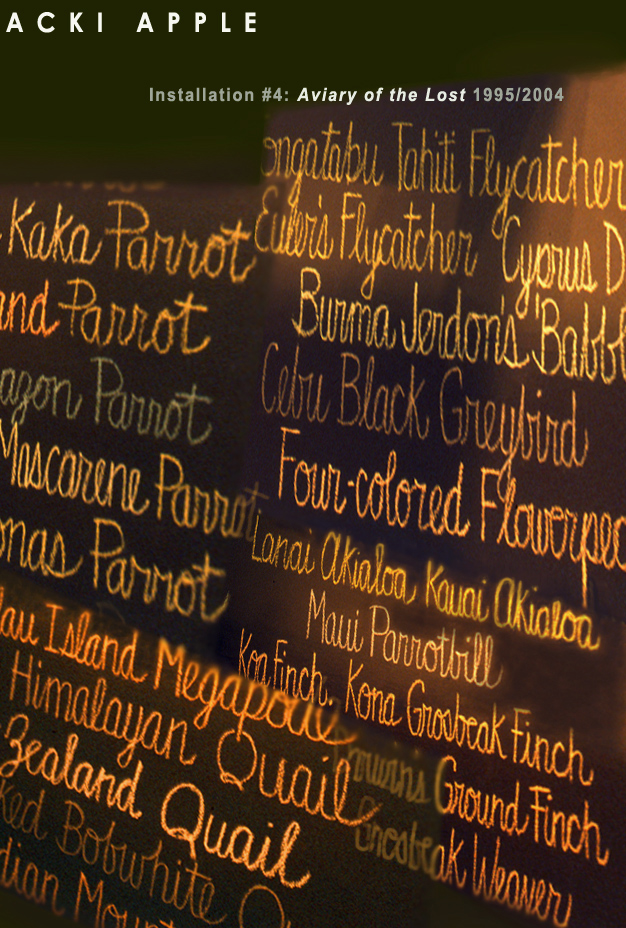 ACKI APPLE
Installation #4: Aviary of the Lost 1995/2004
Kaka Parrot
and Parrot
azon Parrot
Mascarene Parrot
onas Parrot
lau Island Megapode
Himalayan Quail
Zealand Quail
ked Bobwhite Qu
dian Mount
ongatabu Tahiti Flycatcher
Euler's Flycatcher Cyprus D
Burma Jerdon's Babbl
Cebu Black Greybird
Four-colored Flowerpec
Lanai Akialoa, Kauai Akialoa
Maui Parrotbill
Koa Finch, Kona Grosbeak Finch
Ground Finch
Weaver